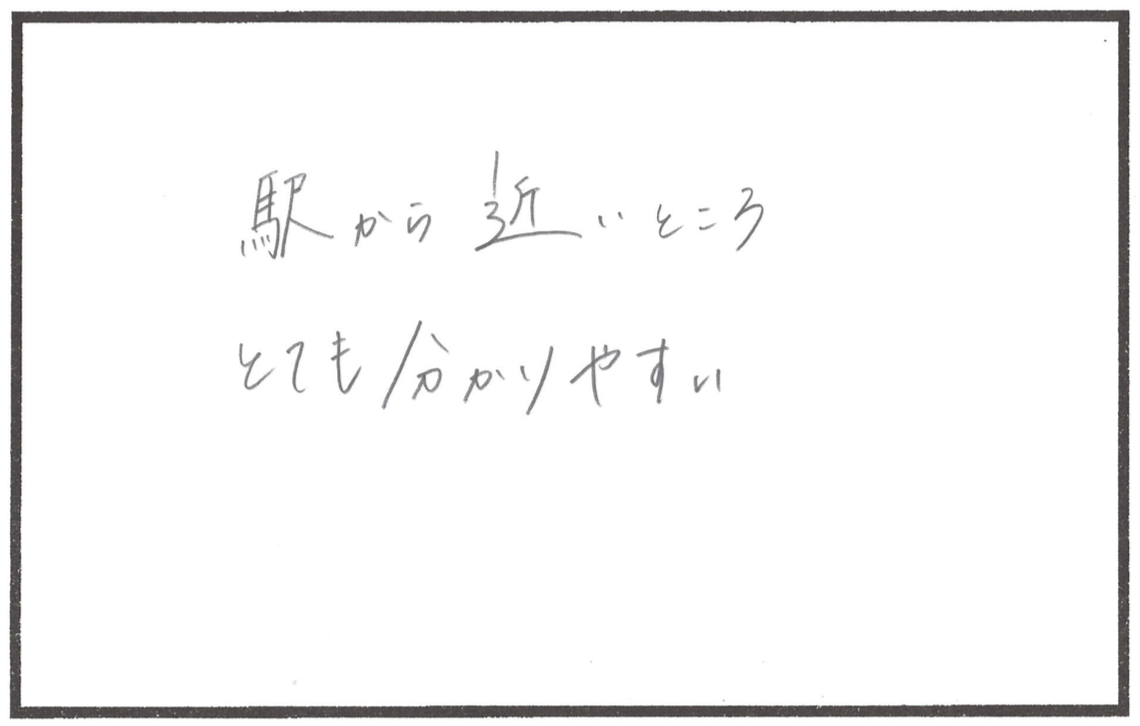 駅から近いところ
とても分かりやすい